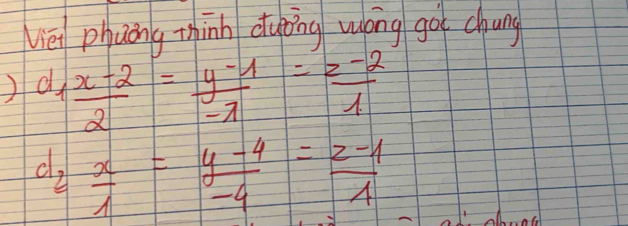 Viết phương trình đường vuông góc chung
) d₁ (x-2)/2 = (y-1)/-1 = (z-2)/1
d₂ x/1 = (y-4)/-4 = (z-1)/1
chung